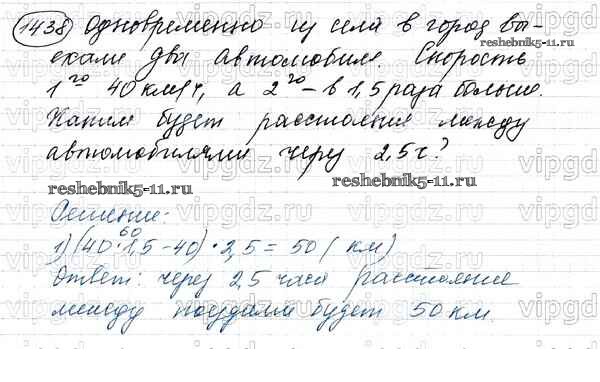 1438 Одновременно из села в город вы-
ехали два автомобиля. Скорость
1го 40 км/ч, а 2го – в 1,5 раза больше.
Каким будет расстояние между
автомобилями через 2,5 ч?
reshebnik5-11.ru
reshebnik5-11.ru
reshebnik5-11.ru
Решение:
60
1) (40·1,5-40)·2,5=50 (км)
Ответ: через 2,5 часа расстояние
между поездами будет 50 км.
vipgdz.ru